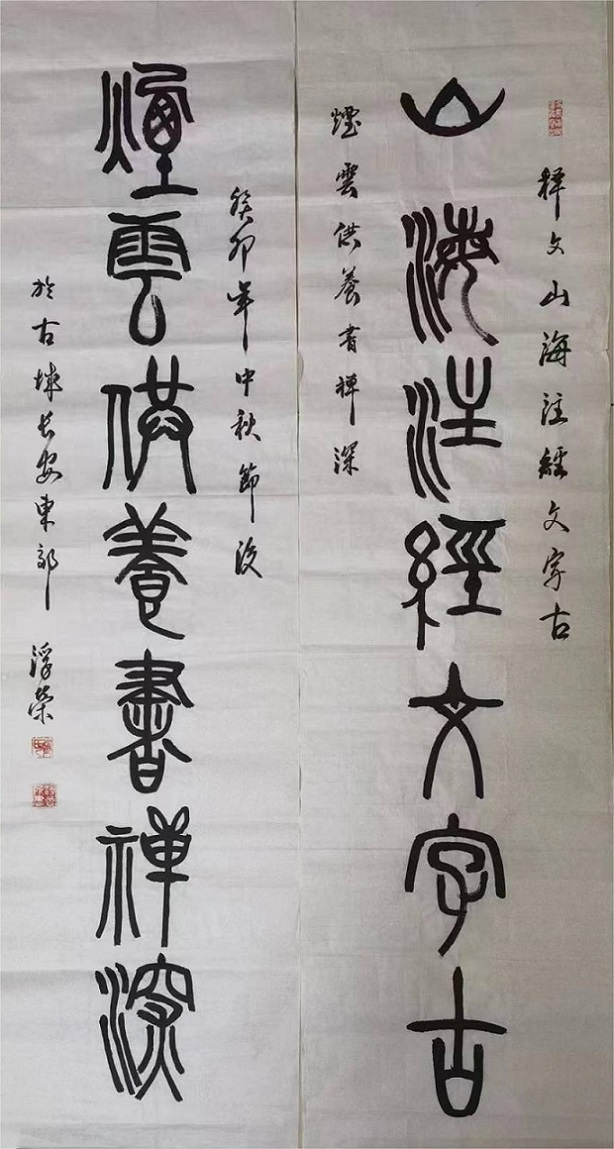 释文山海注經文字古
山海注經文字古
煙雲供養書禅深
癸卯年中秋節後
煙雲供養書禪深
於古城長安東郊 浮榮